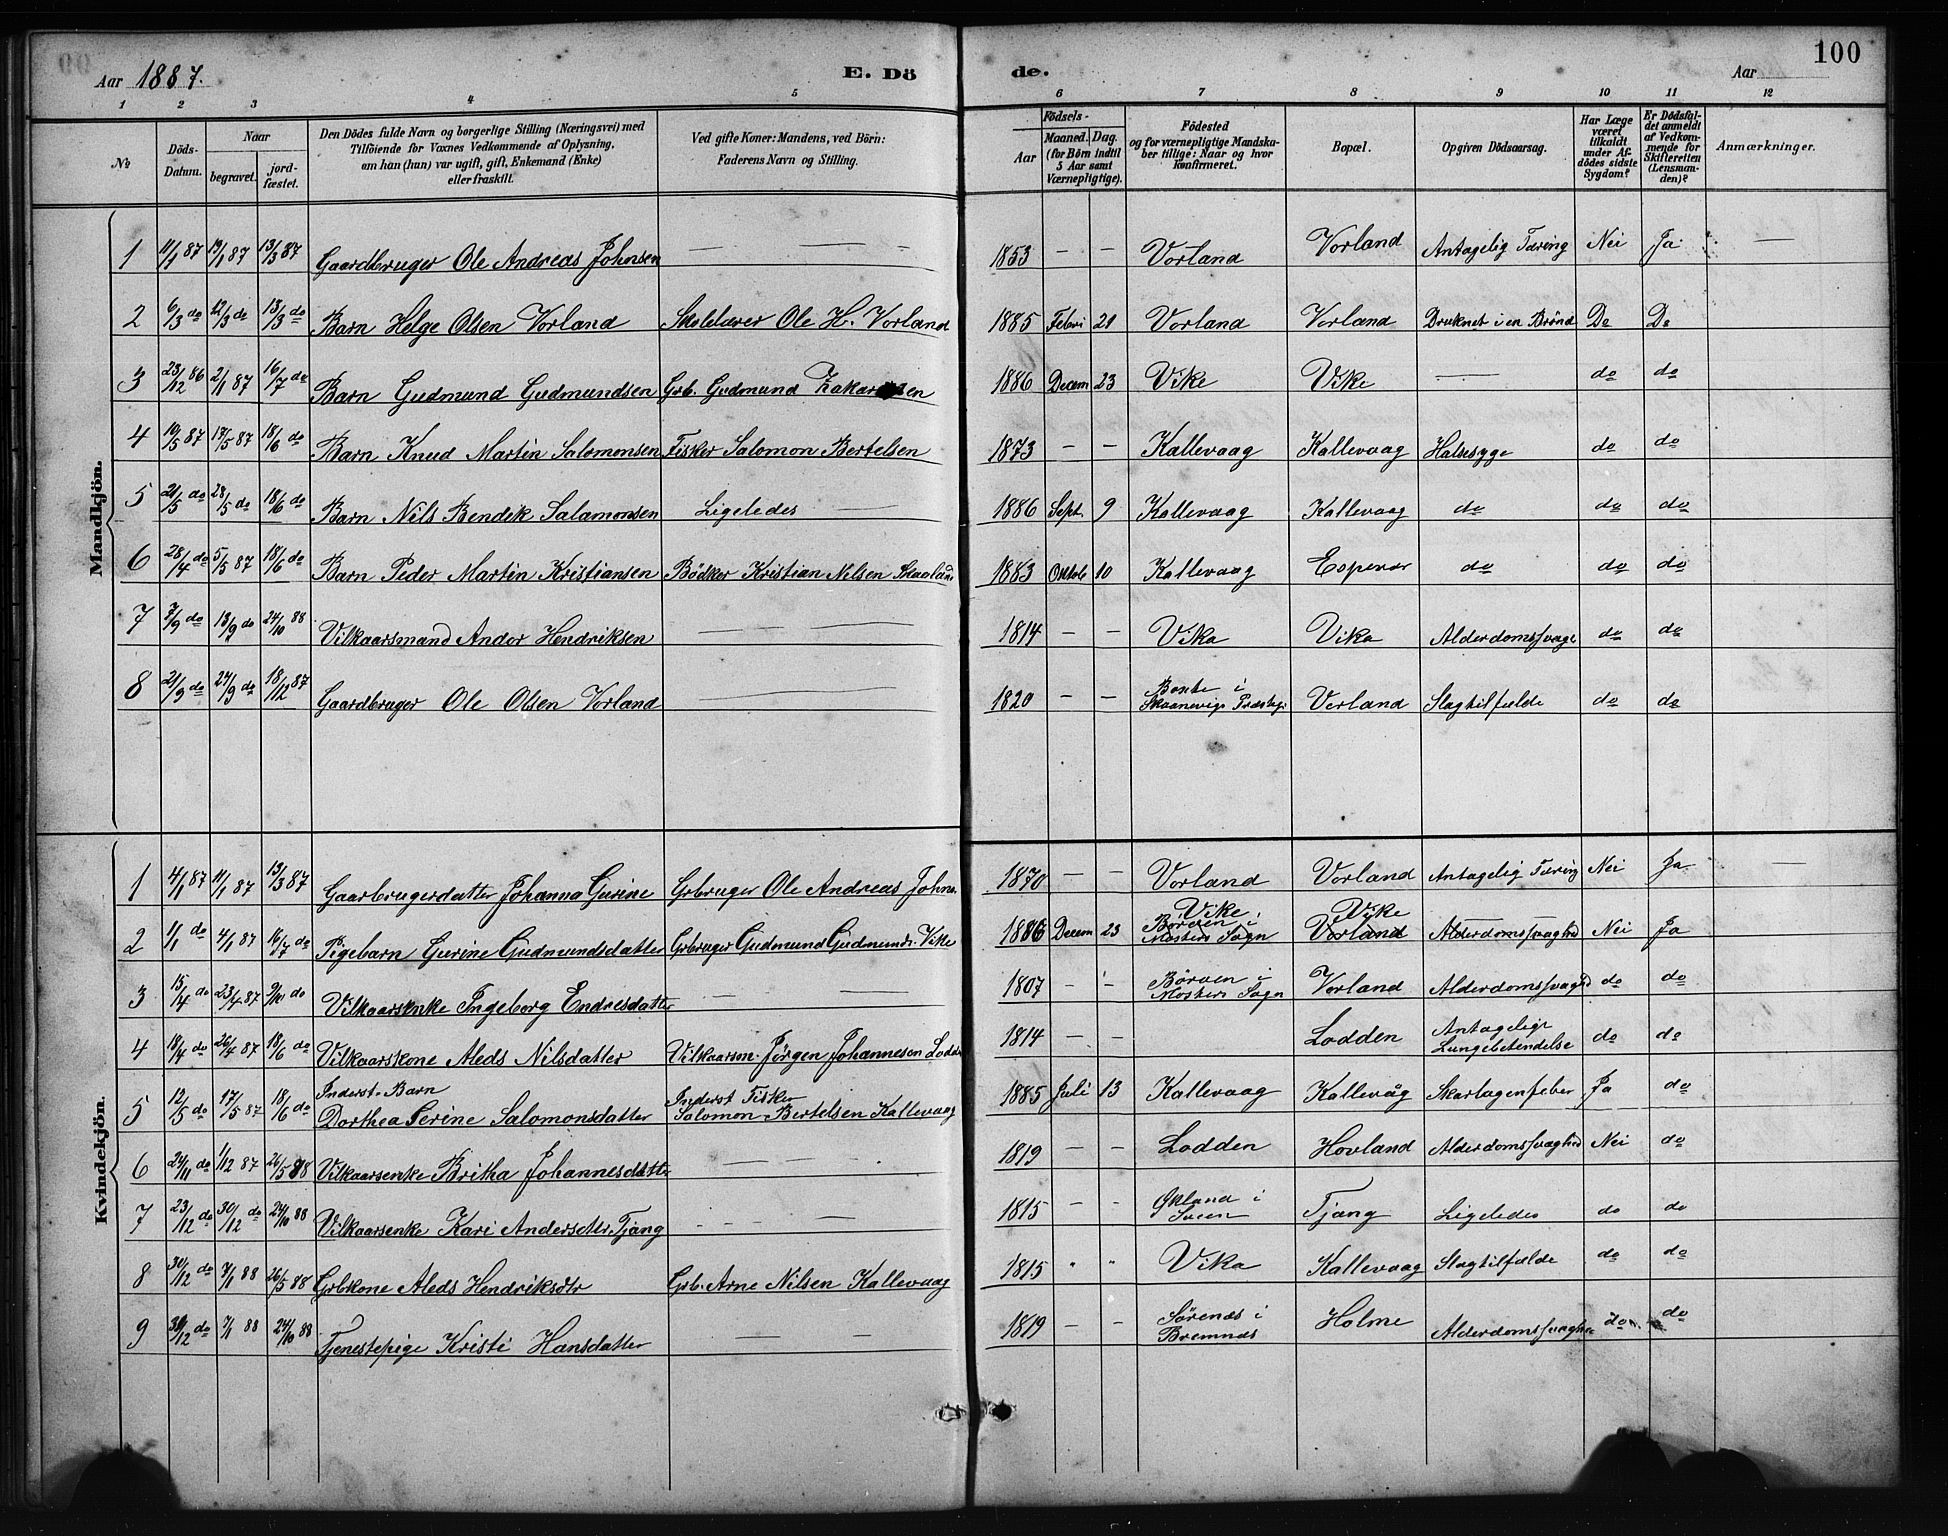 Aar 1887. E. Dö de. Aar 100
1 2 3 4 5 6 7 8 9 10 11 12
No
Döds-Datum.
Naar begravet. jord-fæstet.
Den Dödes fulde Navn og borgerlige Stilling (Næringsvei) med Tilföiende for Voxnes Vedkommende af Oplysning, om han (hun) var ugift, gift, Enkemand (Enke) eller fraskilt.
Ved gifte Koner: Mandens, ved Börn: Faderens Navn og Stilling.
Födsels- Aar Maaned. Dag. (for Börn indtil 5 Aar samt Værnepligtige).
Födested og for værnepligtige Mandskaber tillige: Naar og hvor konfirmeret.
Bopæl.
Opgiven Dödsaarsag.
Har Læge været tilkaldt under Afdödes sidste Sygdom?
Er Dödsfaldet anmeldt af Vedkommende for Skifteretten (Lensmanden)?
Anmærkninger.
Mandkjön.
1 11/1 87 19/1 87 13/3 87 Gaardbruger Ole Andreas Johnsen — — - 1853 - - Vorland Vorland Antagelig Tæring Nei Ja —
2 6/3 do 12/3 do 13/3 do Barn Helge Olsen Vorland Skolelærer Ole H. Vorland 1885 Febri 21 Vorland Vorland Druknet i en Brønd Do Do
3 23/12 86 2/1 87 16/7 do Barn Gudmund Gudmundsen Grb. Gudmund 1886 Decem 23 Vike Vike — do do
4 10/5 87 17/5 87 18/6 do Barn Knud Martin Salomonsen Fisker Salomon Bertelsen 1873 - - Kallevaag Kallevaag Halsesyge do do
5 21/5 do 28/5 do 18/6 do Barn Nils Bendik Salamonsen Ligeledes — 1886 Sept. 9 Kallevaag Kallevaag do do do
6 28/4 do 5/5 87 18/6 do Barn Peder Martin Kristiansen Bödker Kristian Nilsen 1883 Oktob 10 Kallevaag Espevær do do do
7 7/9 do 13/9 do 24/10 88 Vilkaarsmand Andor Hendriksen — — — 1814 - - Vika Vika Alderdomssvage do do
8 21/9 do 24/9 do 18/12 87 Gaardbruger Ole Olsen Vorland — — 1820 - - i Skaanevigs Præstegj Vorland Slagtilfælde do do
Kvindekjön.
1 4/1 87 11/1 87 13/3 87 Gaarbrugerdatter Johanna Gurine Grbruger Ole Andreas Johns. 1870 - - Vorland Vorland Antagelig Tæring Nei Ja —
2 1/1 do 4/1 87 16/7 do Pigebarn Gurine Gudmundsdatter Grbruger Gudmund Gudmunds. Vike 1886 Decem 23 Vike Børøen i Mosters Sogn Vike Vorland Alderdomssvaghed Nei Ja
3 15/4 do 23/4 87 9/10 do Vilkaarsenke Ingeborg Endresdatter — — 1807 - - Børøen i Mosters Sogn Vorland Alderdomssvaghed do do
4 18/4 do 26/4 87 18/6 do Vilkaarskone Aleds Nilsdatter Vilkaarsm. Jörgen Johannesen Lodden 1814 - - Lodden Antagelige Lungebetendelse do do
5 12/5 do 17/5 87 18/6 do Inderst-Barn Dorthea Serine Salomonsdatter Inderst Fisker Salomon Bertelsen Kallevaag 1885 Juli 13 Kallevaag Kallevåg Skarlagenfeber Ja do
6 24/11 do 1/12 87 26/5 88 Vilkaarsenke Britha Johannesdatter — — — 1819 - - Lodden Hovland Alderdomssvaghed Nei do
7 23/12 do 30/12 do 24/10 88 Vilkaarsenke Kari Andersdtr Tjang - - - — 1815 - - Økland i Sveen Tjang Ligeledes do do
8 30/12 do 7/1 88 26/5 88 Grbkone Aleds Hendriksdtr Grb. Arne Nilsen Kallevaag 1815 " " Vika Kallevaag Slagtilfælde do do
9 30/12 do 7/1 88 24/10 88 Tjenestepige Kristi Hansdatter — — 1819 - - Sørenæs i Bremnæs Holme Alderdomssvaghed do do